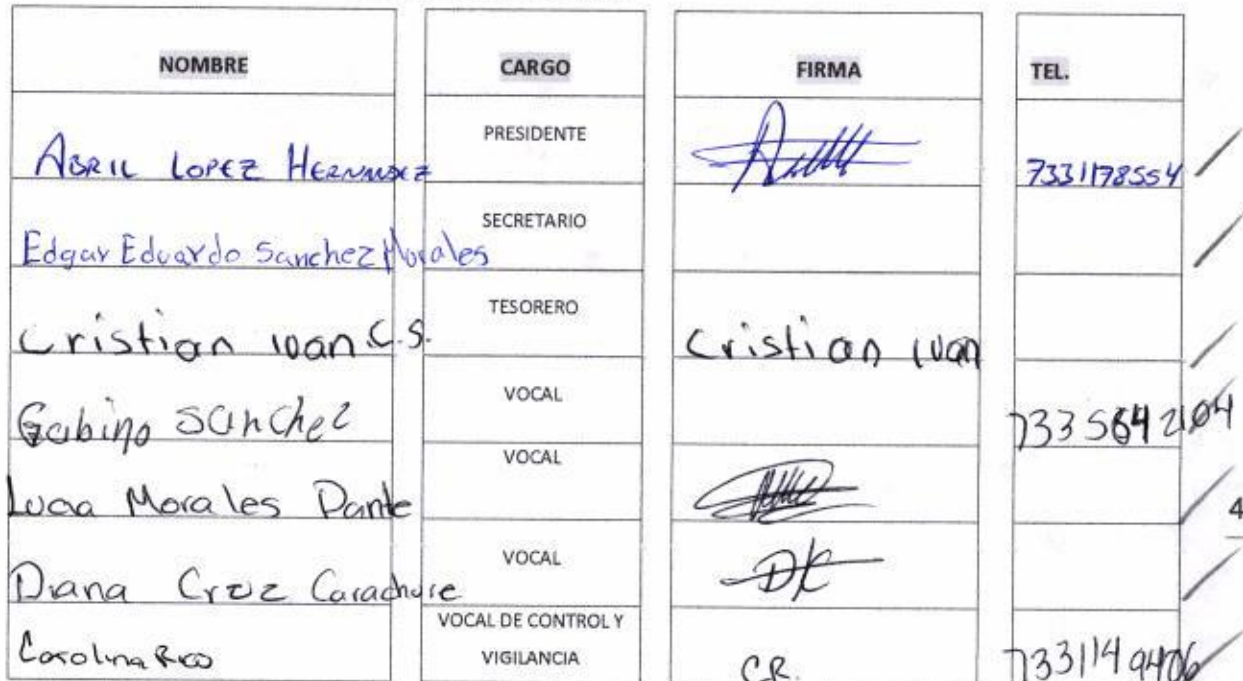 NOMBRE CARGO FIRMA TEL.
ABRIL LOPEZ HERNANDEZ PRESIDENTE 7331178554
Edgar Eduardo Sanchez Morales SECRETARIO
Cristian ivan C.S. TESORERO Cristian ivan
Gabino Sanchez VOCAL 733 564 2104
Morales Dante VOCAL
4
Diana Cruz VOCAL DC
Carolina Rico VOCAL DE CONTROL Y
VIGILANCIA CR. 7331149406